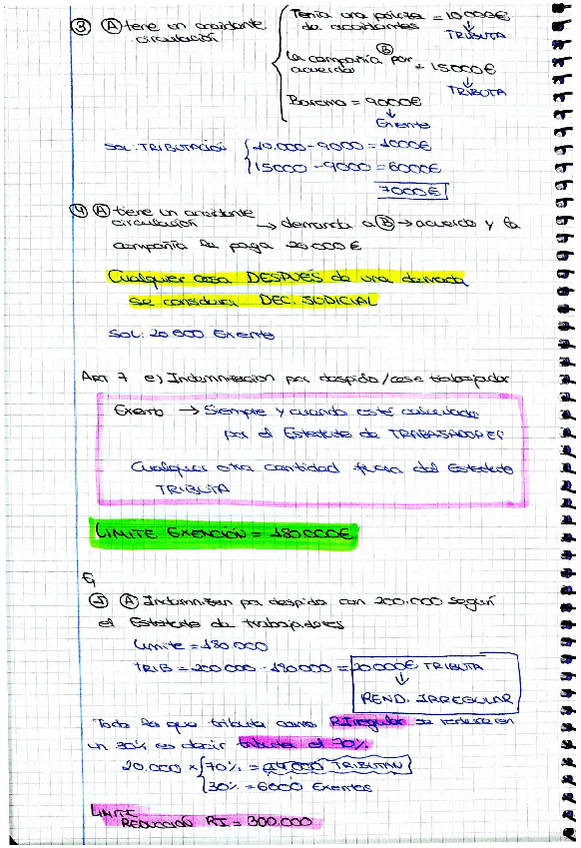 ③ Ⓐ tiene un accidente circulación
Tenía una póliza de accidentes = 10.000€
↓
TRIBUTA
La compañía Ⓑ por acuerdo = 15000€
↓
TRIBUTA
Baremo = 9000€
↓
Exento
SOL: TRIBUTACIÓN { 10.000 - 9000 = 1000€
15000 - 9000 = 6000€
7000€
④ Ⓐ tiene un accidente circulación → demanda a Ⓑ → acuerdo y la
compañía le paga 20.000€
Cualquier cosa DESPUÉS de una demanda
se considera DEC. JUDICIAL
SOL: 20 000 Exento
ART 7 e) Indemnización por despido/cese trabajador
Exento → Siempre y cuando esté calculada
por el Estatuto de TRABAJADORES
Cualquier otra cantidad fuera del Estatuto
TRIBUTA
LIMITE EXENCIÓN = 180.000€
Ej
① Ⓐ Indemnizan por despido con 200.000 según
el Estatuto de trabajadores
Limite = 180.000
TRIB = 200 000 - 180 000 = 20 000€ TRIBUTA
↓
REND. IRREGULAR
Todo lo que tributa como R.Irregular se reduce en
un 30% es decir tributa el 70%
20.000 × { 70% = 14 000 TRIBUTAN
30% = 6000 Exentos
LIMITE
REDUCCIÓN RI = 300.000